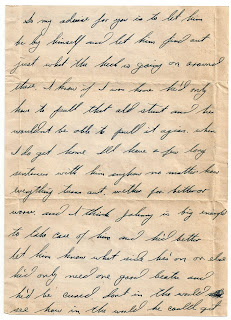 So my advise for you is to let him
be by himself and let him find out
just what the heck is going on around
there. I know if I was home he'd only
have to pull that old stunt and he
wouldn't be able to pull it again. when
I do get home I'll have a few long
sentences with him anyhow no matter how
everything turns out. wether for better or
worse. and I think Johnny is big enough
to take care of him and he'd better
let him know what side he's on or else
he'd only need one good beatin and
he'd be cured don't in the world
see how in the world he couldn't get